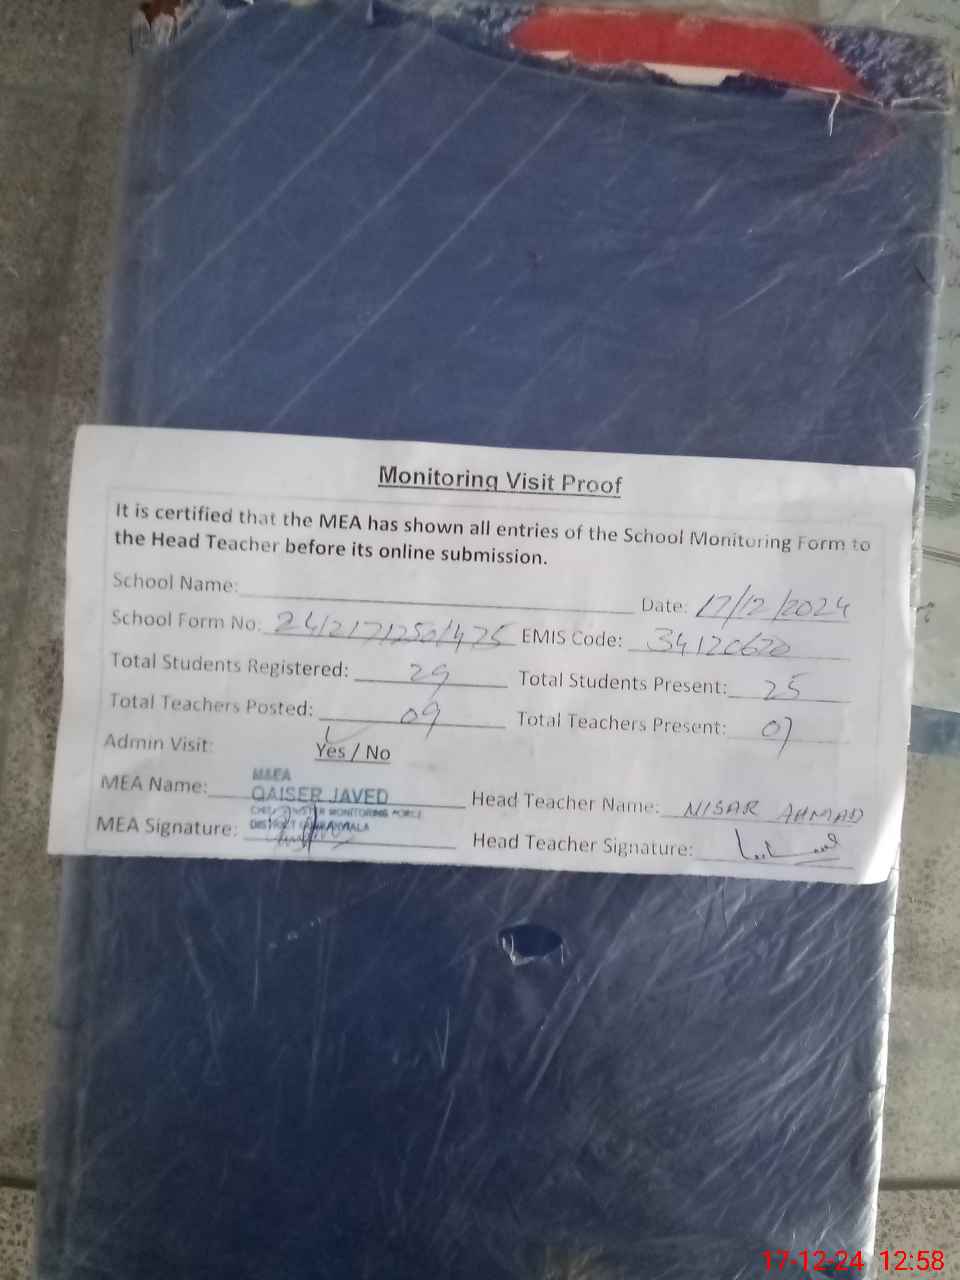 Monitoring Visit Proof
It is certified that the MEA has shown all entries of the School Monitoring Form to
the Head Teacher before its online submission.
School Name: Date: 17/12/2024
School Form No: EMIS Code: 34120620
Total Students Registered: 29 Total Students Present: 25
Total Teachers Posted: 09 Total Teachers Present: 07
Admin Visit: Yes / No
M&EA
MEA Name: QAISER JAVED Head Teacher Name: NISAR AHMAD
MONITORING FORCE
MEA Signature: DISTRICT Head Teacher Signature:
17-12-24 12:58